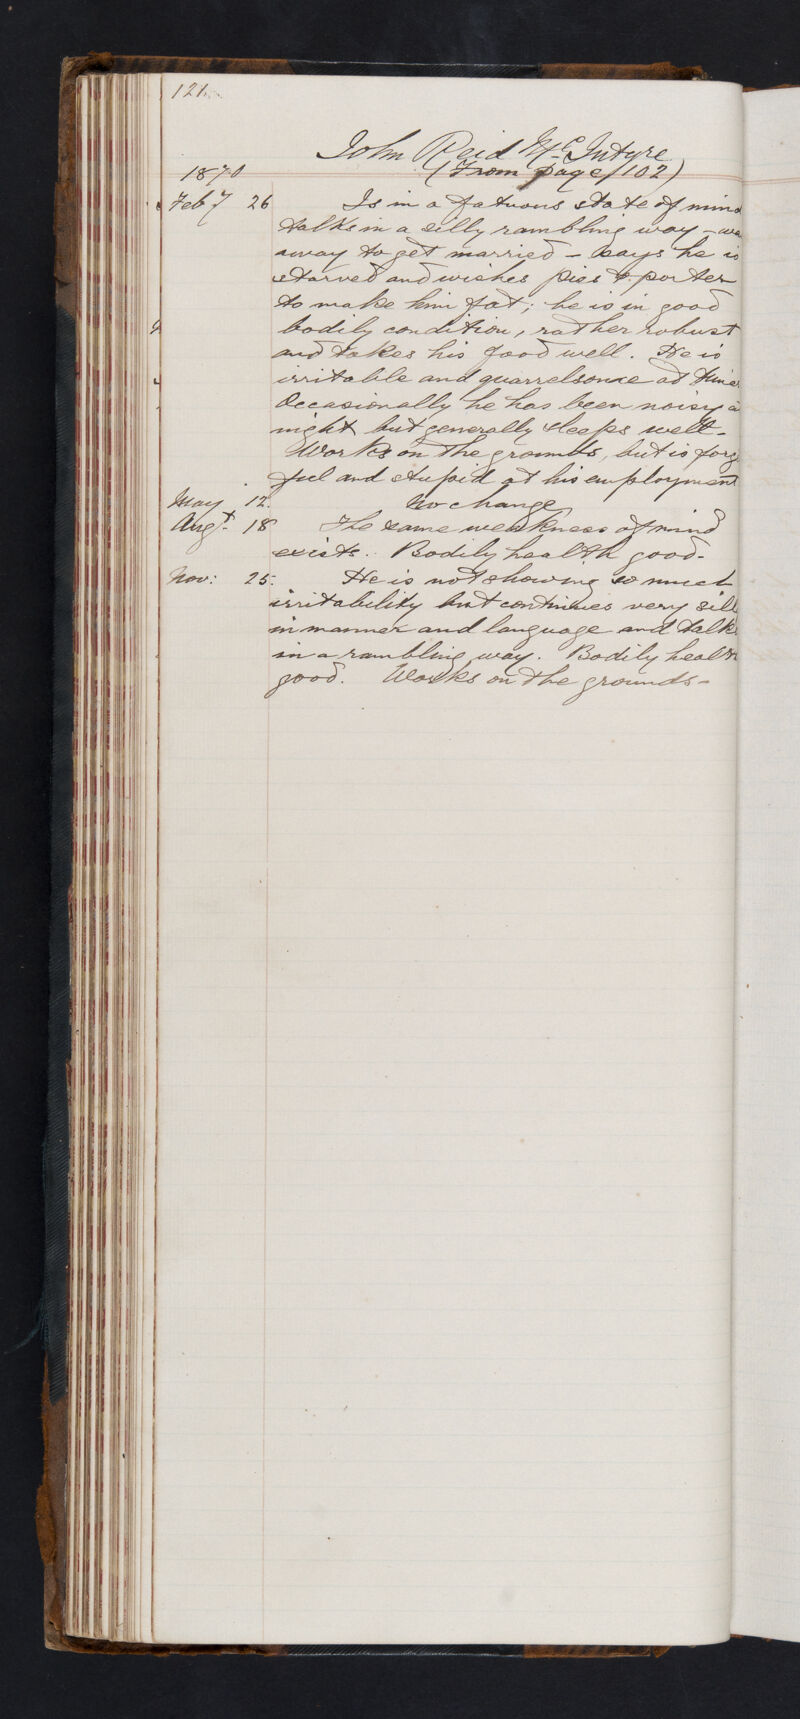 121
John Reid McIntyre
1870 (From page 102)
Feby 26 Is in a fatuous state of mind
talks in a silly rambling way - was
away to get married - says he is
starved and wishes pies & porter
to make him fat; he is in good
bodily condition, rather robust
and takes his food well. He is
irritable and quarrelsome at times
Occasionally he has been noisy a
night but generally sleeps well -
Works on the grounds, but is forg
ful and stupid at his employment
May 12. No change
Augt. 18 The same weakness of mind
exists. Bodily health good -
Nov: 25. He is not showing so much
irritability but continues very sill
in manner and language and talks
in a rambling way. Bodily health
good. Works on the grounds -